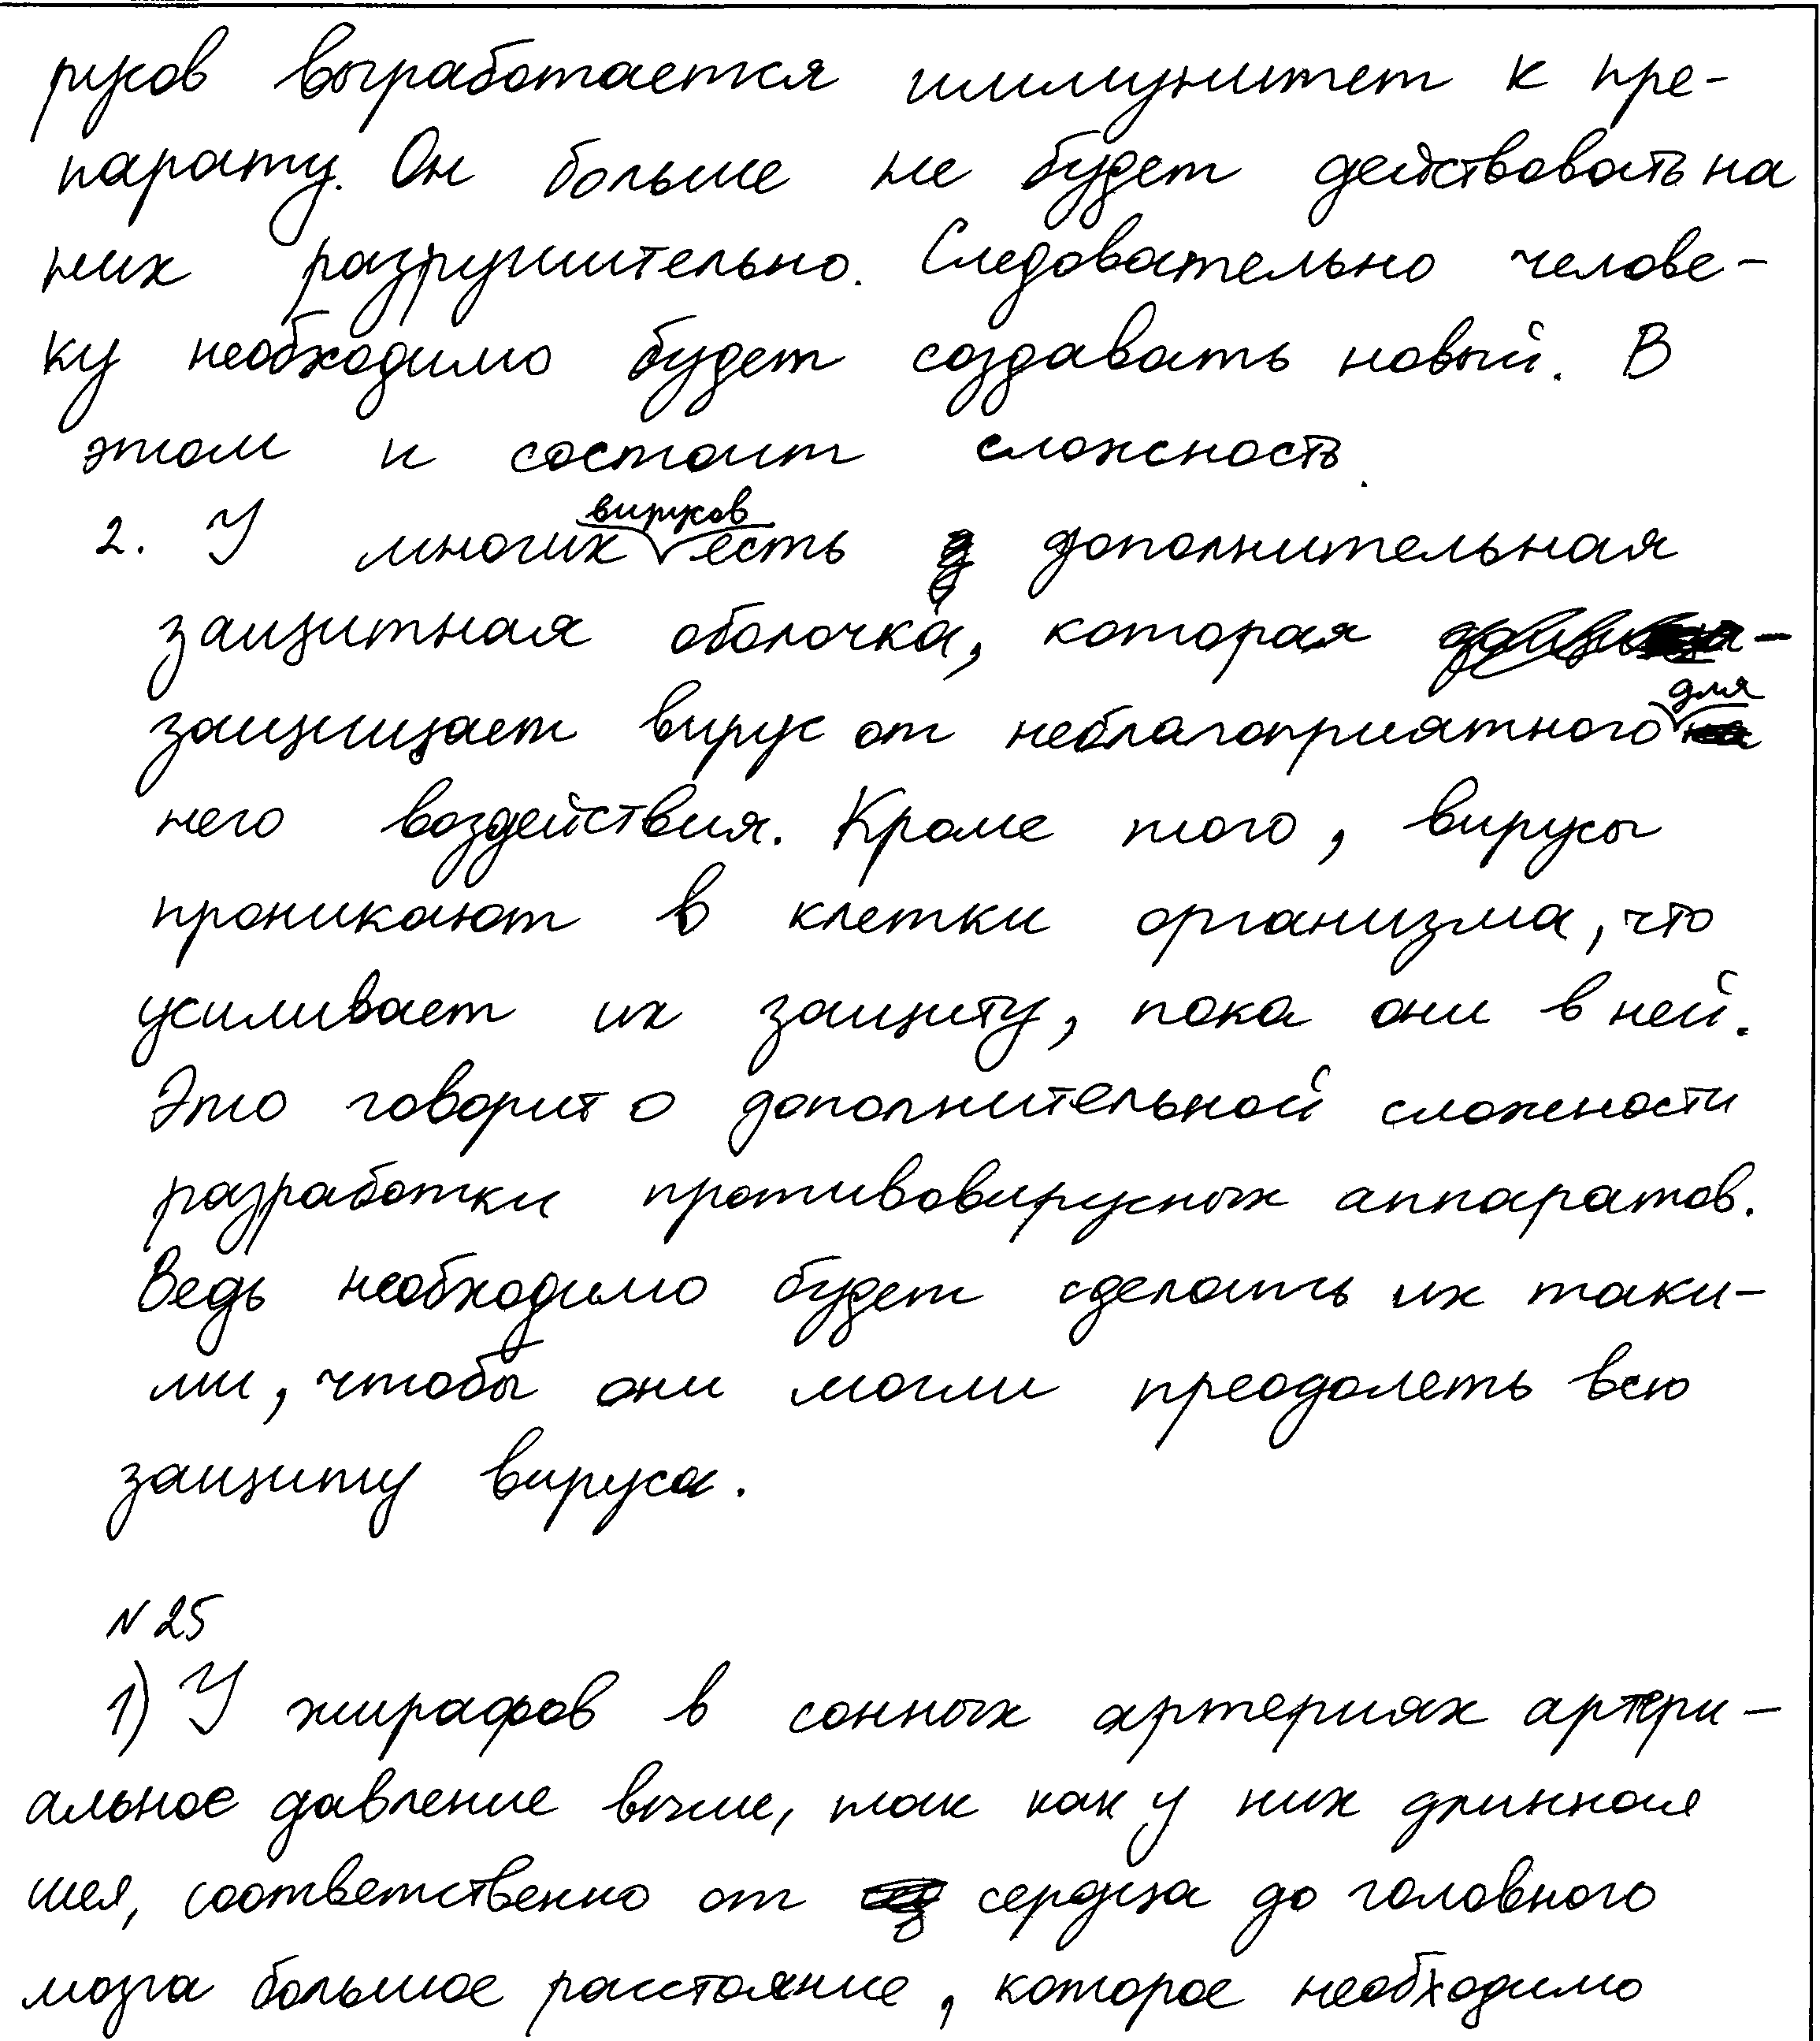 русов выработается иммунитет к пре-
парату. Он больше не будет действовать на
них разрушительно. Следовательно челове-
ку необходимо будет создавать новый. В
этом и состоит сложность.
2. У многих вирусов есть дополнительная
защитная оболочка, которая
защищает вирус от неблагоприятного для
него воздействия. Кроме того, вирусы
проникают в клетки организма, что
усиливает их защиту, пока они в ней.
Это говорит о дополнительной сложности
разработки противовирусных аппаратов.
Ведь необходимо будет сделать их таки-
ми, чтобы они могли преодолеть всю
защиту вируса.
№25
1) У жирафов в сонных артериях артери-
альное давление выше, так как у них длинная
шея, соответственно от сердца до головного
мозга большое расстояние, которое необходимо